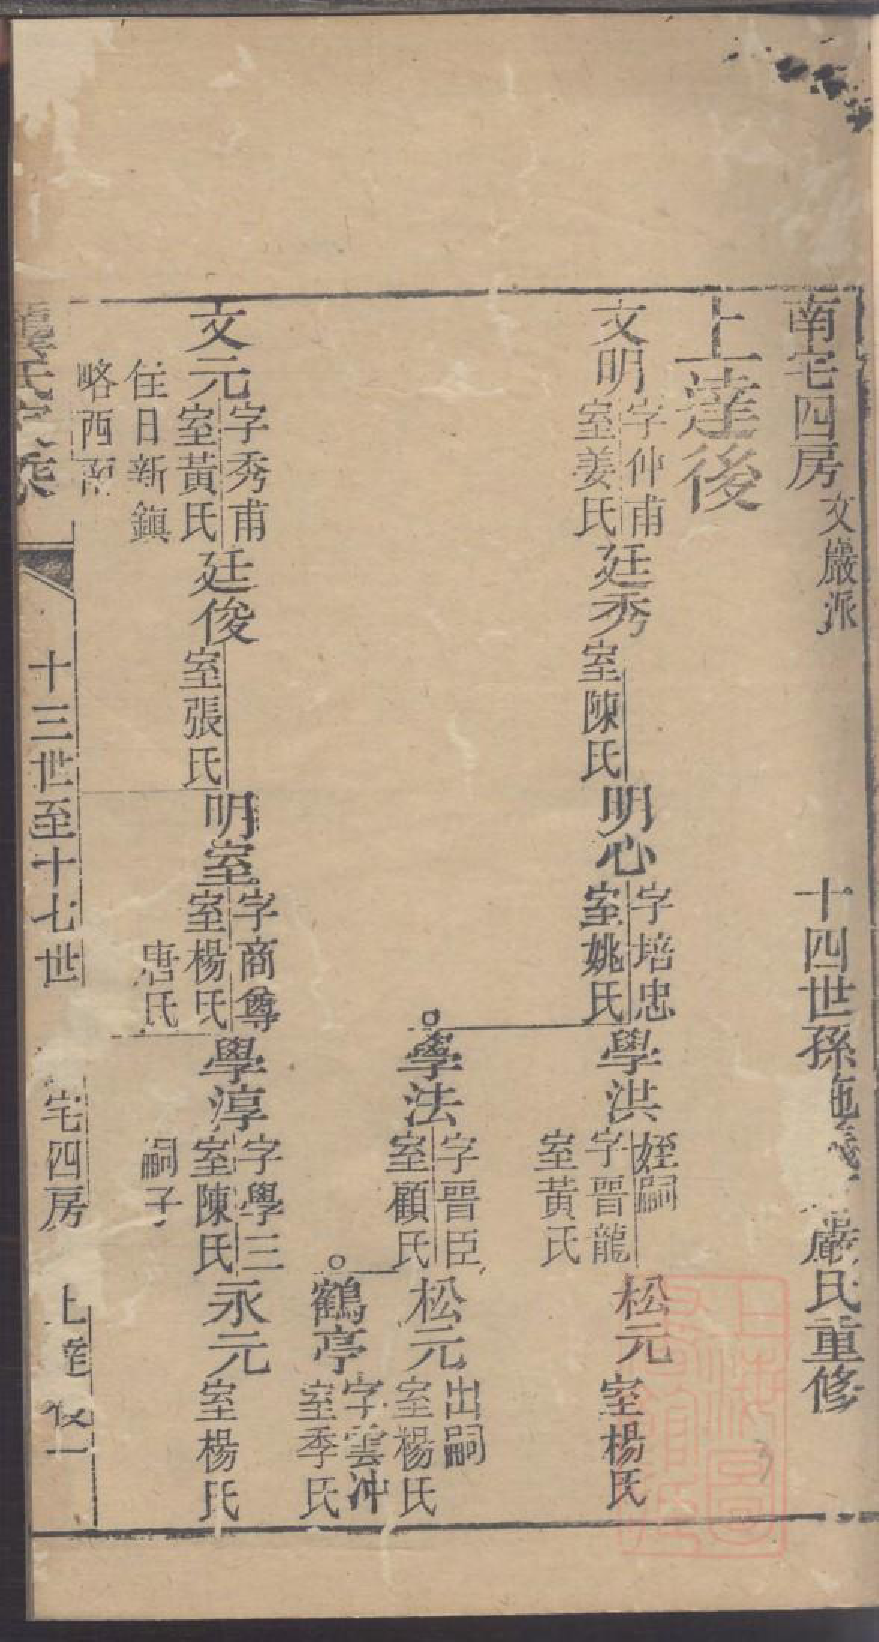 南宅四房 文嚴派 十四世孫 嚴氏重修
上達後
文明 字仲甫 室姜氏
廷秀 室陳氏
明心 字培忠 室姚氏
學洪 姪嗣 字晋龍 室黃氏
松元 室楊氏
學法 字晋臣 室顧氏
松元 出嗣 室楊氏
鶴亭 字雲冲 室季氏
文元 字秀甫 室黃氏 住日新鎮 略西
廷俊 室張氏
明室 字商尊 室楊氏 唐氏
學淳 字學三 室陳氏 嗣子
永元 室楊氏
十三世至十七世 宅四房 上達